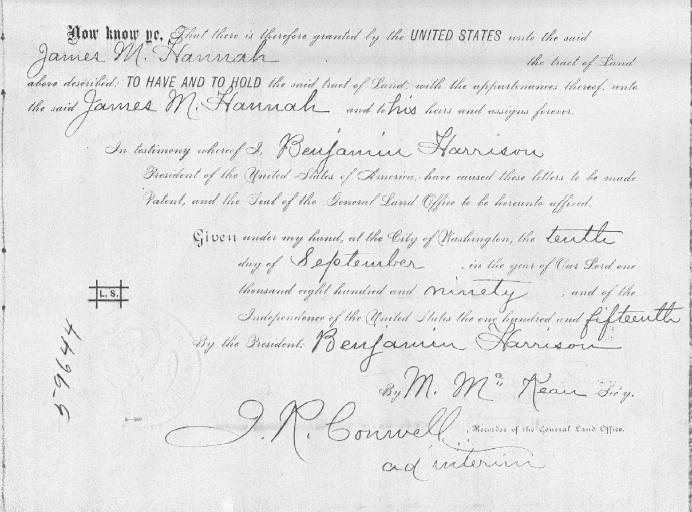 Now know ye, That there is therefore granted by the UNITED STATES unto the said
James M. Hannah the tract of Land
above described: TO HAVE AND TO HOLD the said tract of Land, with the appurtenances thereof, unto
the said James M. Hannah and to his heirs and assigns forever.
In testimony whereof I, Benjamin Harrison
President of the United States of America, have caused these letters to be made
Patent, and the Seal of the General Land Office to be hereunto affixed.
Given under my hand, at the City of Washington, the tenth
day of September, in the year of Our Lord one
thousand eight hundred and ninety, and of the
Independence of the United States the one hundred and fifteenth
By the President: Benjamin Harrison
L. S.
59644
By M. McKean Sec'y.
J. R. Conwell, Recorder of the General Land Office.
ad interim